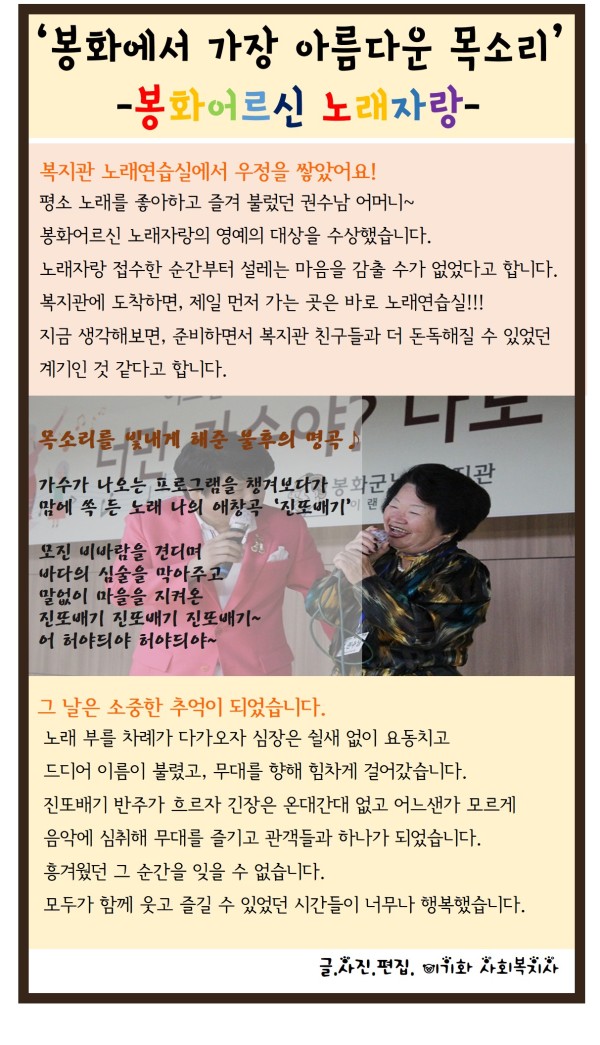 ‘봉화에서 가장 아름다운 목소리’
-봉화어르신 노래자랑-
복지관 노래연습실에서 우정을 쌓았어요!
평소 노래를 좋아하고 즐겨 불렀던 권수남 어머니~
봉화어르신 노래자랑의 영예의 대상을 수상했습니다.
노래자랑 접수한 순간부터 설레는 마음을 감출 수가 없었다고 합니다.
복지관에 도착하면, 제일 먼저 가는 곳은 바로 노래연습실!!!
지금 생각해보면, 준비하면서 복지관 친구들과 더 돈독해질 수 있었던
계기인 것 같다고 합니다.
너만 가수야? 나도
봉화군
목소리를 빛내게 해준 불후의 명곡♪
가수가 나오는 프로그램을 챙겨보다가
맘에 쏙 든 노래 나의 애창곡 ‘진또배기’
모진 비바람을 견디며
바다의 심술을 막아주고
말없이 마을을 지켜온
진또배기 진또배기 진또배기~
어 허야듸야 허야듸야~
그 날은 소중한 추억이 되었습니다.
노래 부를 차례가 다가오자 심장은 쉴새 없이 요동치고
드디어 이름이 불렸고, 무대를 향해 힘차게 걸어갔습니다.
진또배기 반주가 흐르자 긴장은 온대간대 없고 어느샌가 모르게
음악에 심취해 무대를 즐기고 관객들과 하나가 되었습니다.
흥겨웠던 그 순간을 잊을 수 없습니다.
모두가 함께 웃고 즐길 수 있었던 시간들이 너무나 행복했습니다.
글.사진.편집. 이기화 사회복지사